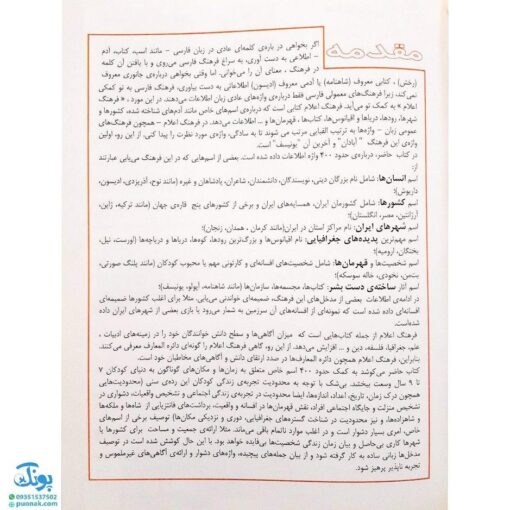 مقدمه
اگر بخواهی در باره‌ی کلمه‌ای عادی در زبان فارسی – مانند اسب، کتاب، آدم
– اطلاعی به دست آوری، به سراغ فرهنگ فارسی می‌روی و با یافتن آن کلمه
در فرهنگ ، معنای آن را می‌خوانی. اما وقتی بخواهی درباره‌ی جانوری معروف
(رخش) ، کتابی معروف (شاهنامه) یا آدمی معروف (ادیسون) اطلاعاتی به دست بیاوری، فرهنگ فارسی به تو کمکی
نمی‌کند، زیرا فرهنگ‌های معمولی فارسی فقط درباره‌ی واژه‌های عادی زبان اطلاعات می‌دهند. در این مورد ، « فرهنگ
اعلام » به کمک تو می‌آید. فرهنگ اعلام کتابی است که درباره‌ی اسم‌های خاص مانند آدم‌های شناخته شده، کشورها و
شهرها، رودها، دریاها و اقیانوس‌ها، کتاب‌ها ، قهرمان‌ها و ... اطلاعات می‌دهد. در فرهنگ اعلام – همچون فرهنگ‌های
عمومی زبان – واژه‌ها به ترتیب الفبایی مرتب می شوند تا به سادگی، واژه‌ی مورد نظرت را پیدا کنی. از این رو، اولین
واژه‌ی این فرهنگ " آبادان" و آخرین آن "یونیسف" است.
در کتاب حاضر، درباره‌ی حدود ۴۰۰ واژه اطلاعات داده شده است. بعضی از اسم‌هایی که در این فرهنگ می‌یابی عبارتند
از:
اسم انسان‌ها: شامل نام بزرگان دینی، نویسندگان، دانشمندان، شاعران، پادشاهان و غیره (مانند نوح، آذریزدی، ادیسون،
داریوش)؛
اسم کشورها: شامل کشورمان ایران، همسایه‌های ایران و برخی از کشورهای پنج قاره‌ی جهان (مانند ترکیه، ژاپن،
آرژانتین، مصر، انگلستان)؛
اسم شهرهای ایران: نام مراکز استان در ایران(مانند کرمان ، همدان، زنجان)؛
اسم مهم‌ترین پدیده‌های جغرافیایی: نام اقیانوس‌ها و بزرگ‌ترین رودها، کوه‌ها، دریاها و دریاچه‌ها (اورست، نیل،
بختگان، ارومیه)؛
اسم شخصیت‌ها و قهرمان‌ها: شامل شخصیت‌های افسانه‌ای و کارتونی مهم یا محبوب کودکان (مانند پلنگ صورتی،
بت‌من، نخودی، خاله سوسکه)؛
اسم آثار ساخته‌ی دست بشر: کتاب‌ها، مجسمه‌ها، سازمان‌ها (مانند شاهنامه، آپولو، یونیسف)؛
در ادامه‌ی اطلاعات بعضی از مدخل‌های این فرهنگ، ضمیمه‌ای خواندنی می‌یابی، مثلا برای اغلب کشورها ضمیمه‌ای
افسانه‌ای داده شده است که نمونه‌ای از افسانه‌های آن سرزمین به شمار می‌رود یا بازی بعضی از شهرهای ایران داده
شده است.
فرهنگ اعلام از جمله کتاب‌هایی است که میزان آگاهی‌ها و سطح دانش خوانندگان خود را در زمینه‌های ادبیات ،
علم، جغرافیا، فلسفه، دین و ... افزایش می‌دهد. از این رو، گاهی فرهنگ اعلام را گونه‌ای دائره المعارف معرفی می‌کنند.
بنابراین، فرهنگ اعلام همچون دائره المعارف‌ها در صدد ارتقای دانش و آگاهی‌های مخاطبان خود است.
کتاب حاضر می‌کوشد به کمک حدود ۴۰۰ اسم خاص متعلق به زمان‌ها و مکان‌های گوناگون به دنیای کودکان ۷
تا ۹ سال وسعت ببخشد. بی‌شک با توجه به محدودیت تجربه‌ی زندگی کودکان این رده‌ی سنی (محدودیت‌هایی
همچون درک زمان، تاریخ، اعداد، اندازه‌ها، ایضا محدودیت در تجربه‌ی زندگی اجتماعی و تشخیص واقعیات، دشواری در
تشخیص منزلت و جایگاه اجتماعی افراد، نقش قهرمان‌ها در افسانه و واقعیت، برداشت‌های فانتزیایی از شاه‌ها و ملکه‌ها
و شاهزاده‌ها، و نیز محدودیت در شناخت گستره‌های جغرافیایی، دوری و نزدیکی مکان‌ها) توصیف برخی از اسم‌های
خاص، امری بسیار دشوار است و در اغلب موارد ناتمام باقی می‌ماند. مثلا ارائه‌ی جمعیت و مساحت برای کشورها یا
شهرها کاری بی‌حاصل و بیان زمان زندگی شخصیت‌ها بی‌فایده خواهد بود. با این حال کوشش شده است در توصیف
مدخل‌ها زبانی ساده به کار گرفته شود و از بیان جمله‌های پیچیده، واژه‌های دشوار و ارائه‌ی آگاهی‌های غیرملموس و
تجربه ناپذیر پرهیز شود.
پونک
09351537502
puonak.com